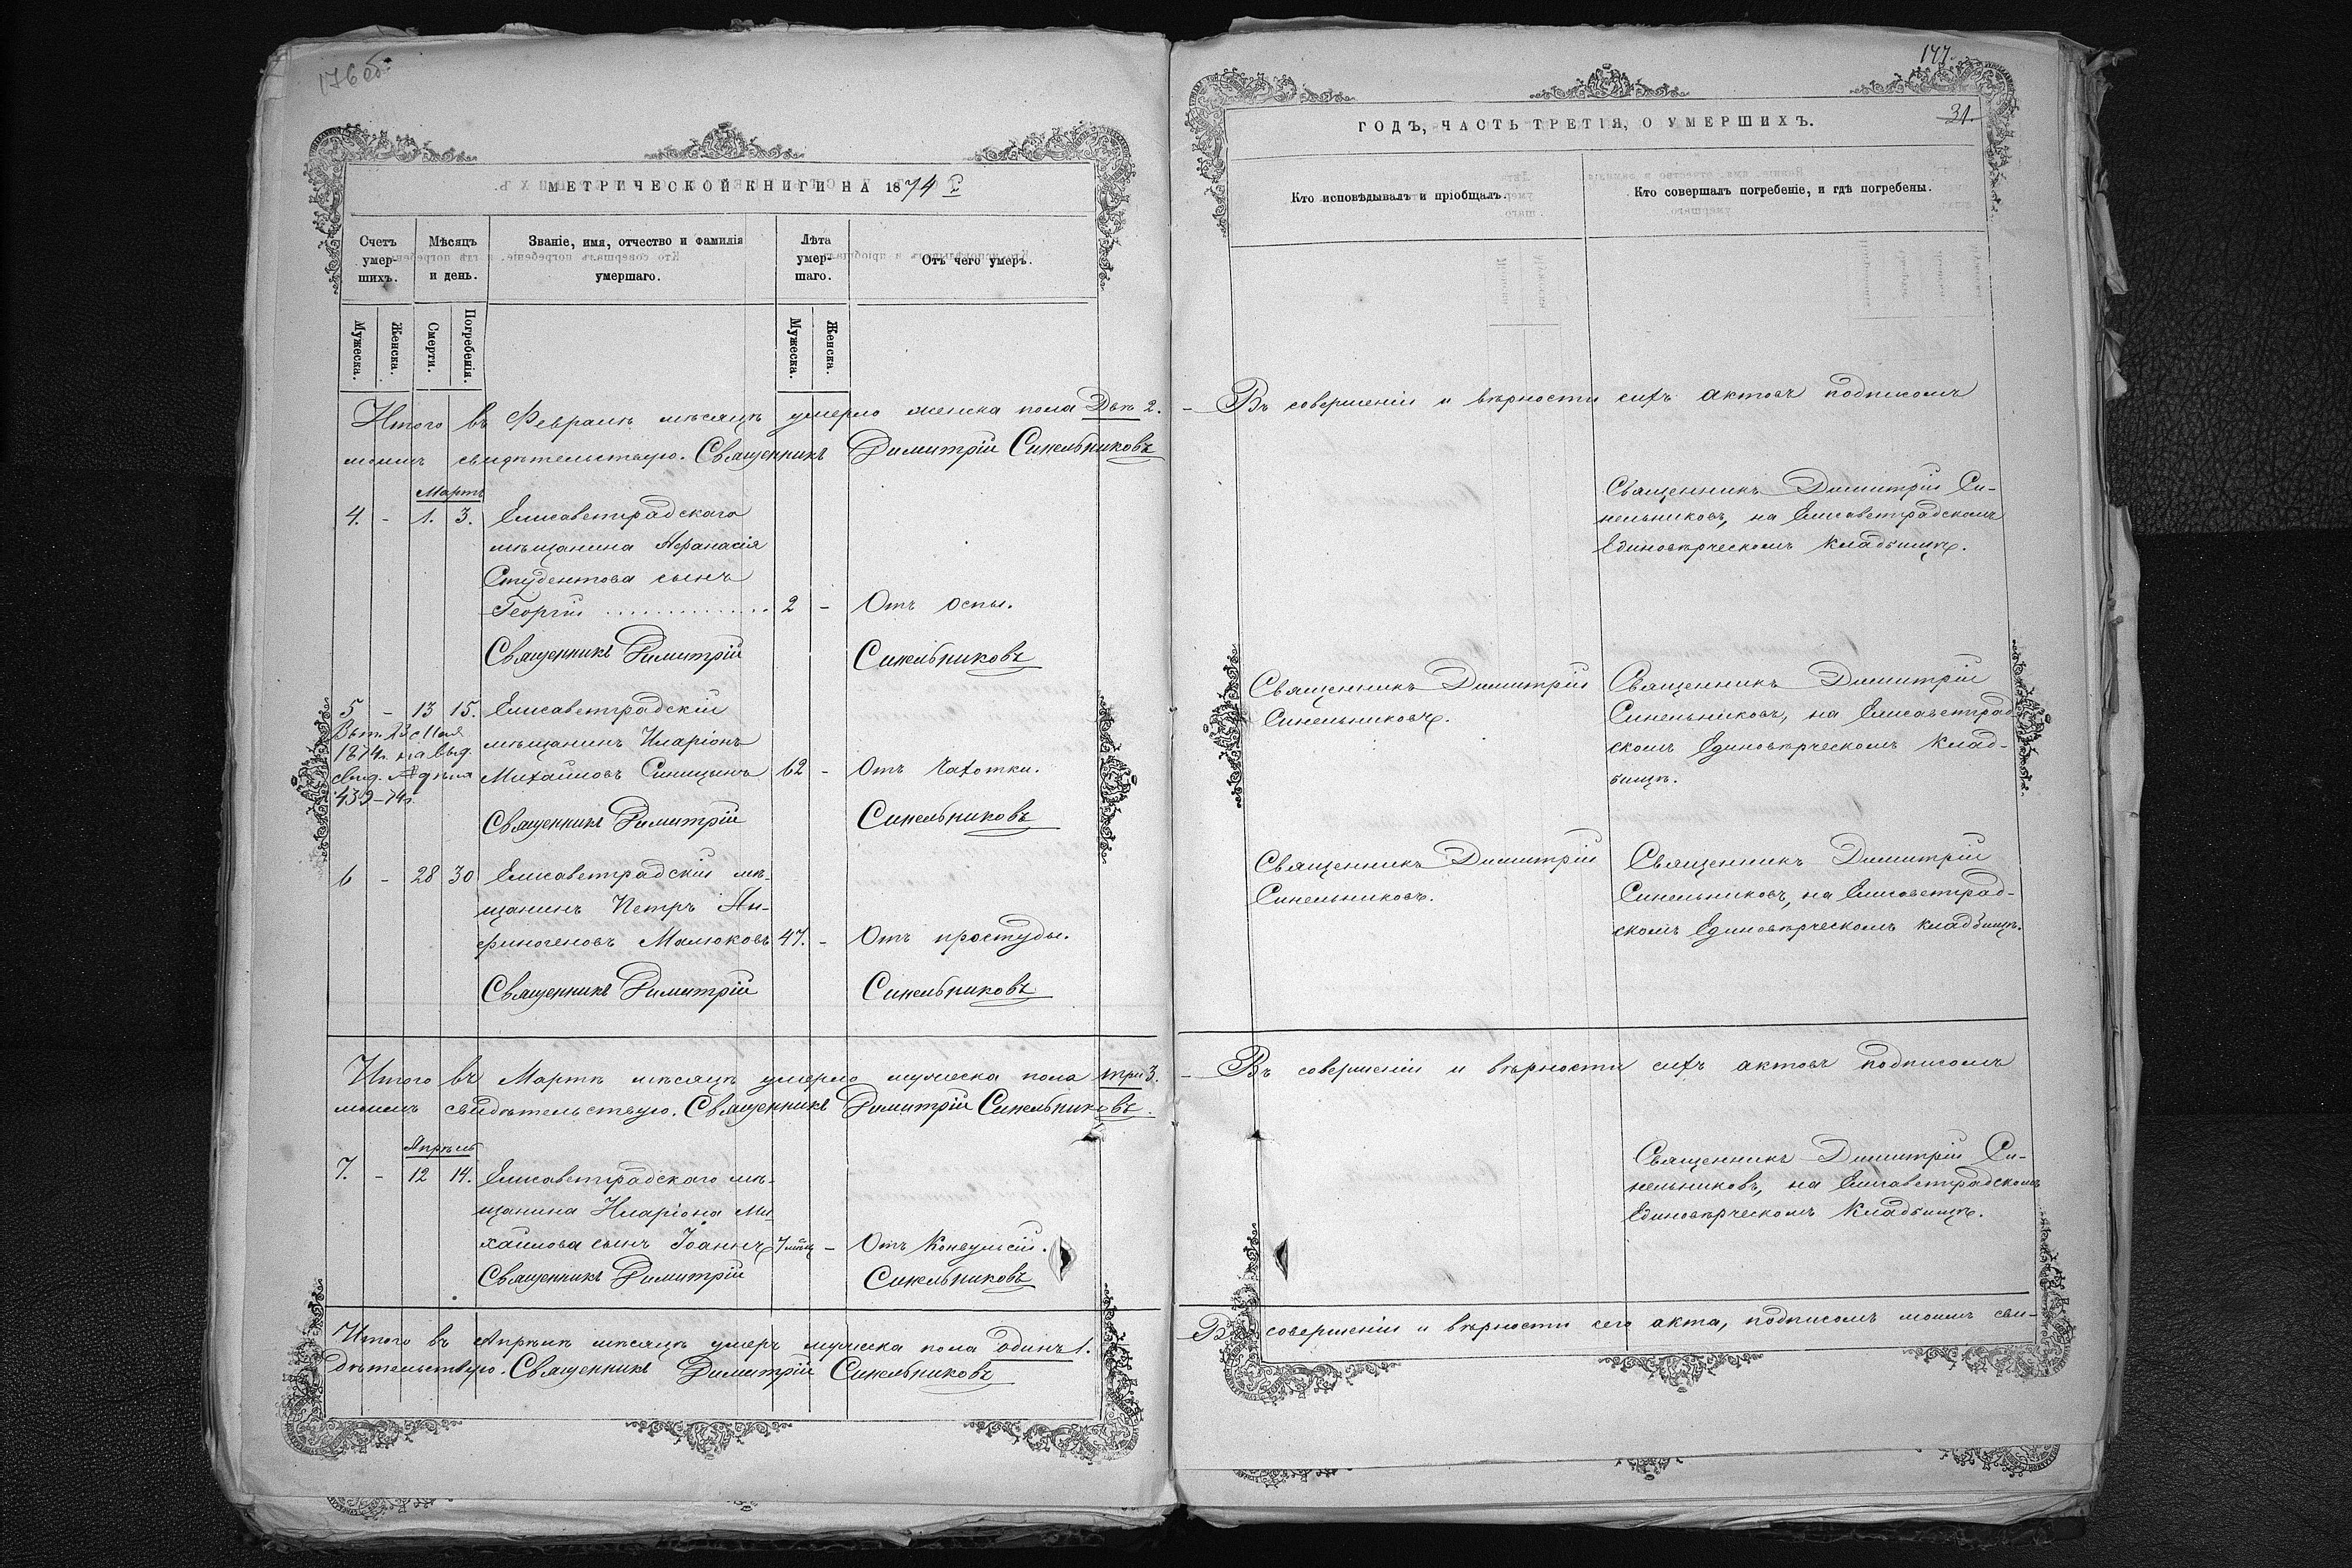 176 об.
МЕТРИЧЕСКОЙ КНИГИ НА 1874 г.
Счетъ умершихъ.
Мѣсяцъ и день.
Званіе, имя, отчество и фамилія умершаго.
Лѣта умершаго.
Отъ чего умеръ.
Мужеска.
Женска.
Смерти.
Погребенія.
Мужеска.
Женска.
Итого въ Февралѣ мѣсяцѣ умерло женска пола Двѣ 2.
моимъ свидѣтельствую. Священникъ Димитрій Синельниковъ
Мартъ
4. - 1. 3. Елисаветградскаго
мѣщанина Аѳанасія
Студентова сынъ
Георгій 2 - Отъ оспы.
Священникъ Димитрій Синельниковъ
5 - 13 15. Елисаветградскій
мѣщанинъ Иларіонъ
Михайловъ Синицынъ 62 - Отъ чахотки.
1874г. на выд.
439-74г.
Священникъ Димитрій Синельниковъ
6 - 28 30 Елисаветградскій мѣ-
щанинъ Петръ Ан-
финогеновъ Малюковъ 47. - Отъ простуды.
Священникъ Димитрій Синельниковъ
Итого въ Мартѣ мѣсяцѣ умерло мужеска пола три 3.
моимъ свидѣтельствую. Священникъ Димитрій Синельниковъ.
Апрѣль
7. - 12 14. Елисаветградскаго мѣ-
щанина Иларіона Ми-
хайлова сынъ Іоаннъ 7 мѣц - Отъ конвульсій.
Священникъ Димитрій Синельниковъ
Итого въ Апрѣлѣ мѣсяцѣ умеръ мужеска пола одинъ 1.
дѣтельствую. Священникъ Димитрій Синельниковъ
177.
31.
ГОДЪ, ЧАСТЬ ТРЕТІЯ, О УМЕРШИХЪ.
Кто исповѣдывалъ и пріобщалъ.
Кто совершалъ погребеніе, и гдѣ погребены.
- Въ совершеніи и вѣрности сихъ актовъ подписомъ
Священникъ Димитрій Си-
нельниковъ, на Елисаветградскомъ
Единовѣрческомъ кладбищѣ.
Священникъ Димитрій
Синельниковъ.
Священникъ Димитрій
Синельниковъ, на Елисаветград-
скомъ Единовѣрческомъ клад-
бищѣ.
Священникъ Димитрій
Синельниковъ.
Священникъ Димитрій
Синельниковъ, на Елисаветград-
скомъ Единовѣрческомъ кладбищѣ.
- Въ совершеніи и вѣрности сихъ актовъ подписомъ
Священникъ Димитрій Си-
нельниковъ, на Елисаветградскомъ
Единовѣрческомъ кладбищѣ.
Въ совершеніи и вѣрности сего акта, подписомъ моимъ сви-